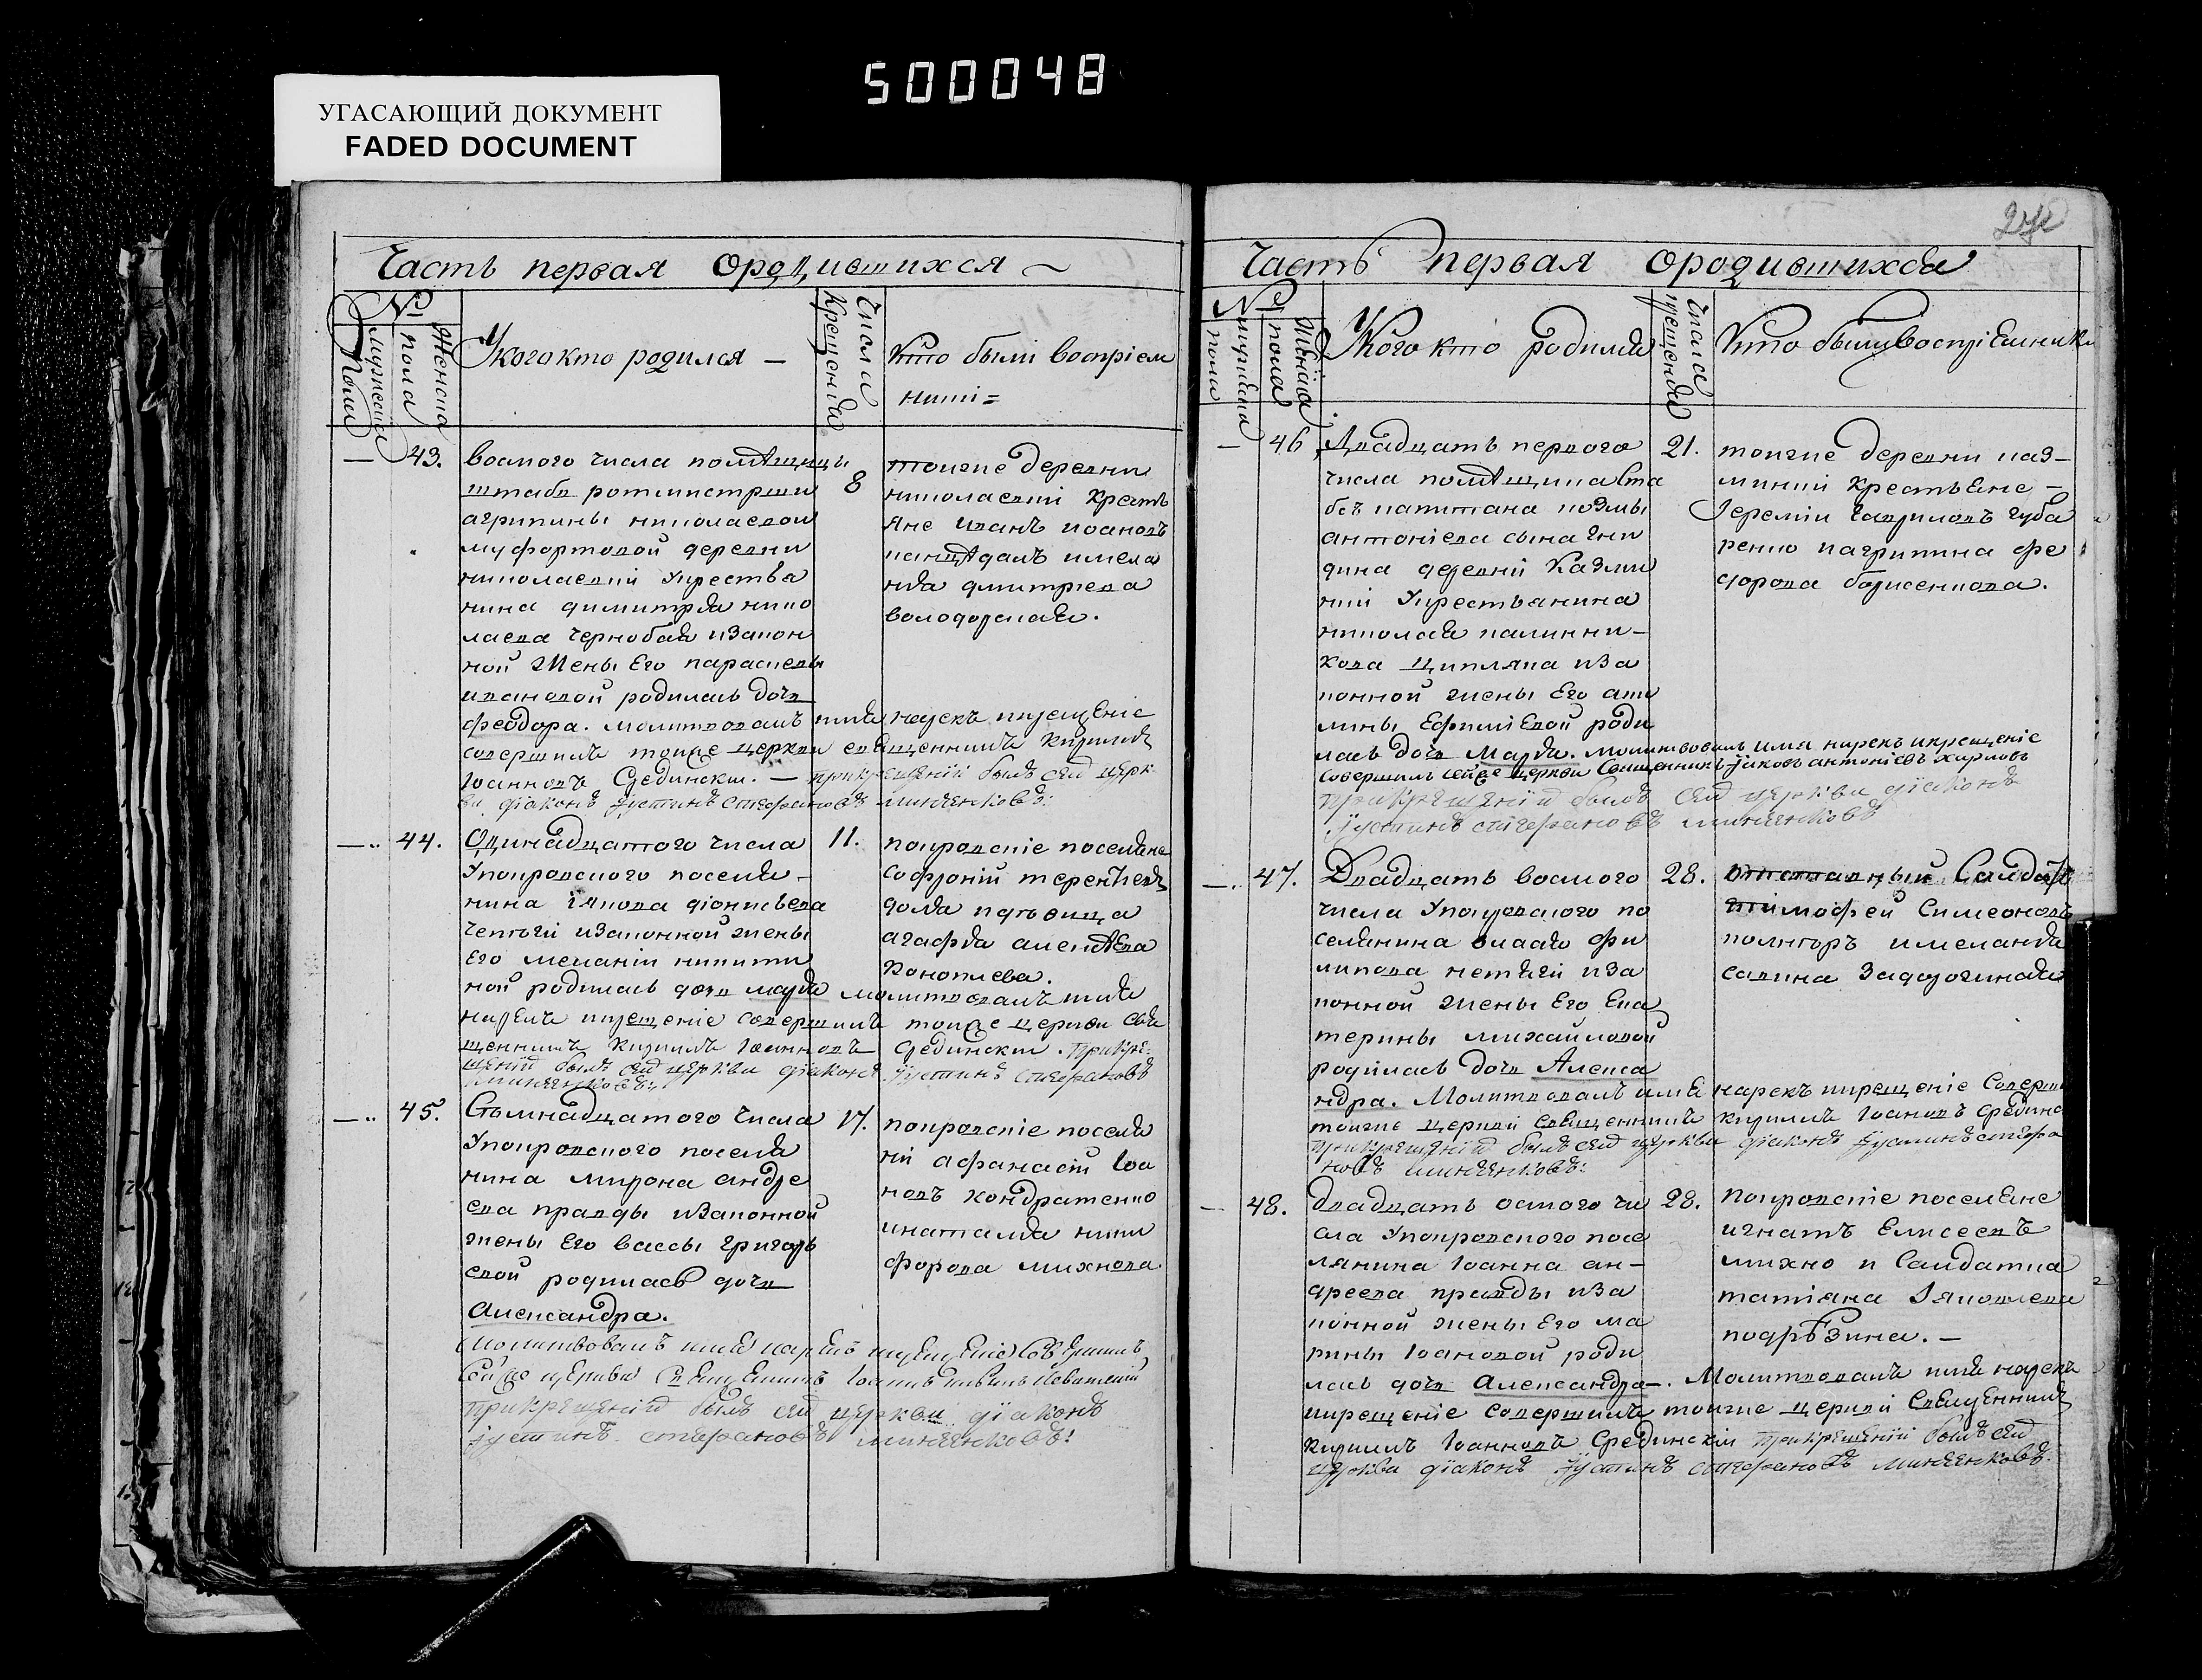 500048
УГАСАЮЩИЙ ДОКУМЕНТ
FADED DOCUMENT
Часть первая ородившихся
№
мужеска пола
Женска пола
Укого кто родился —
Числа Крещенїя
Кто были воспрїем
ники =
— 43.
восмого числа помѣщицы
штабъ ротмистрши
агрипины николаевой
муфортовой деревни
николаевки Укрестья
нина димитрїя нико
лаева чернобая иЗакон
ной жены Его параскевы
ивановой родилась дочь
феодора. молитвовалъ имя нарекъ икрещенїе
совершилъ тоиже церкви священникъ кириллъ
Іоанновъ Срединскїи. — прикрещенїи былъ сей церк
ви дїаконъ Іустинъ стефановъ миненковъ:
8
тоиже деревни
николаевки крестъ
яне иванъ иоановъ
дмитрїева
— 44.
Одинадцатого числа
Упокровского поселя-
нина їякова дїонисьева
иЗаконной жены
Его меланїи никити
ной родилась дочь марїя молитвовалъ имя
нарекъ икрещенїе совершилъ тоиже церкви свя
щенникъ кириллъ Іоанновъ Срединскїи. прикре-
щенїи былъ сей церкви дїаконъ Іустинъ стефановъ
миненковъ:
11.
покровскїе поселяне
софронїй терентїевъ
агафїя алексѣева
Коноплева.
— 45.
Сѣмнадцатого числа
Упокровского поселя
нина мирона андре
ева правды иЗаконной
жены Его вассы григорь
евой родилась дочь
Александра.
молитвовалъ имя нарекъ икрещенїе совершилъ
сейже церкви священникъ Іоаннъ
прикрещенїи былъ сей церкви дїаконъ
Іустинъ стефановъ миненковъ:
17.
покровскїе поселя
ни афанасїи Іоа
новъ кондратенко
инаталїя ники
форова михнова.
Часть первая ородившихся
№
мужеска пола
Женска пола
Укого кто родился
Числа крещенїя
Кто были воспрїемники
— 46
Двадцать первого
числа помѣщика шта
бсъ капитана коЗмы
антонїева сына гни
дина деревни КаЗми
нки Укрестьянина
николая калинни-
кова ципляка иЗа
конной жены Его аки
лины Ефимїевой роди
лась дочь Марїя. молитвовалъ имя нарекъ икрещенїе
совершилъ сейже церкви Священникъ Іаковъ антонїевъ
прикрещенїи былъ сей церкви дїаконъ
Іустинъ стефановъ миненковъ
21.
тоиже деревни каЗ-
минки крестьяне —
Іеремїи гавриловъ губа
ренко иагрипина фе
одорова борисенкова.
— 47.
Двадцать восмого
числа Упокровского по
селянина власїя фи
липова нетяги иЗа
конной жены Его Ека
терины михайловой
родилась дочь Алекса
ндра. Молитвовалъ имя нарекъ икрещенїе совершилъ
тоиже церкви священникъ кириллъ Іоановъ Срединс
прикрещенїи былъ сей церкви дїаконъ Іустинъ стефа
новъ миненковъ:
28.
отставный Салдатъ
тимофей Симеоновъ
имеланїя
савина
— 48.
двадцать осмого чи
сла Упокровского посе
лянина Іоанна ан-
дреева правды иЗа
конной жены Его ма
рины Іоановой роди
лась дочь Александра—. Молитвовалъ имя нарекъ
икрещенїе совершилъ тоиже церкви священникъ
кириллъ Іоанновъ Срединскїи прикрещенїи былъ сей
церкви дїаконъ Іустинъ стефановъ миненковъ:
28.
покровскїе поселяне
игнатъ Елисеевъ
михно и Салдатка
татїяна Іяковлева
подрѣЗина. —